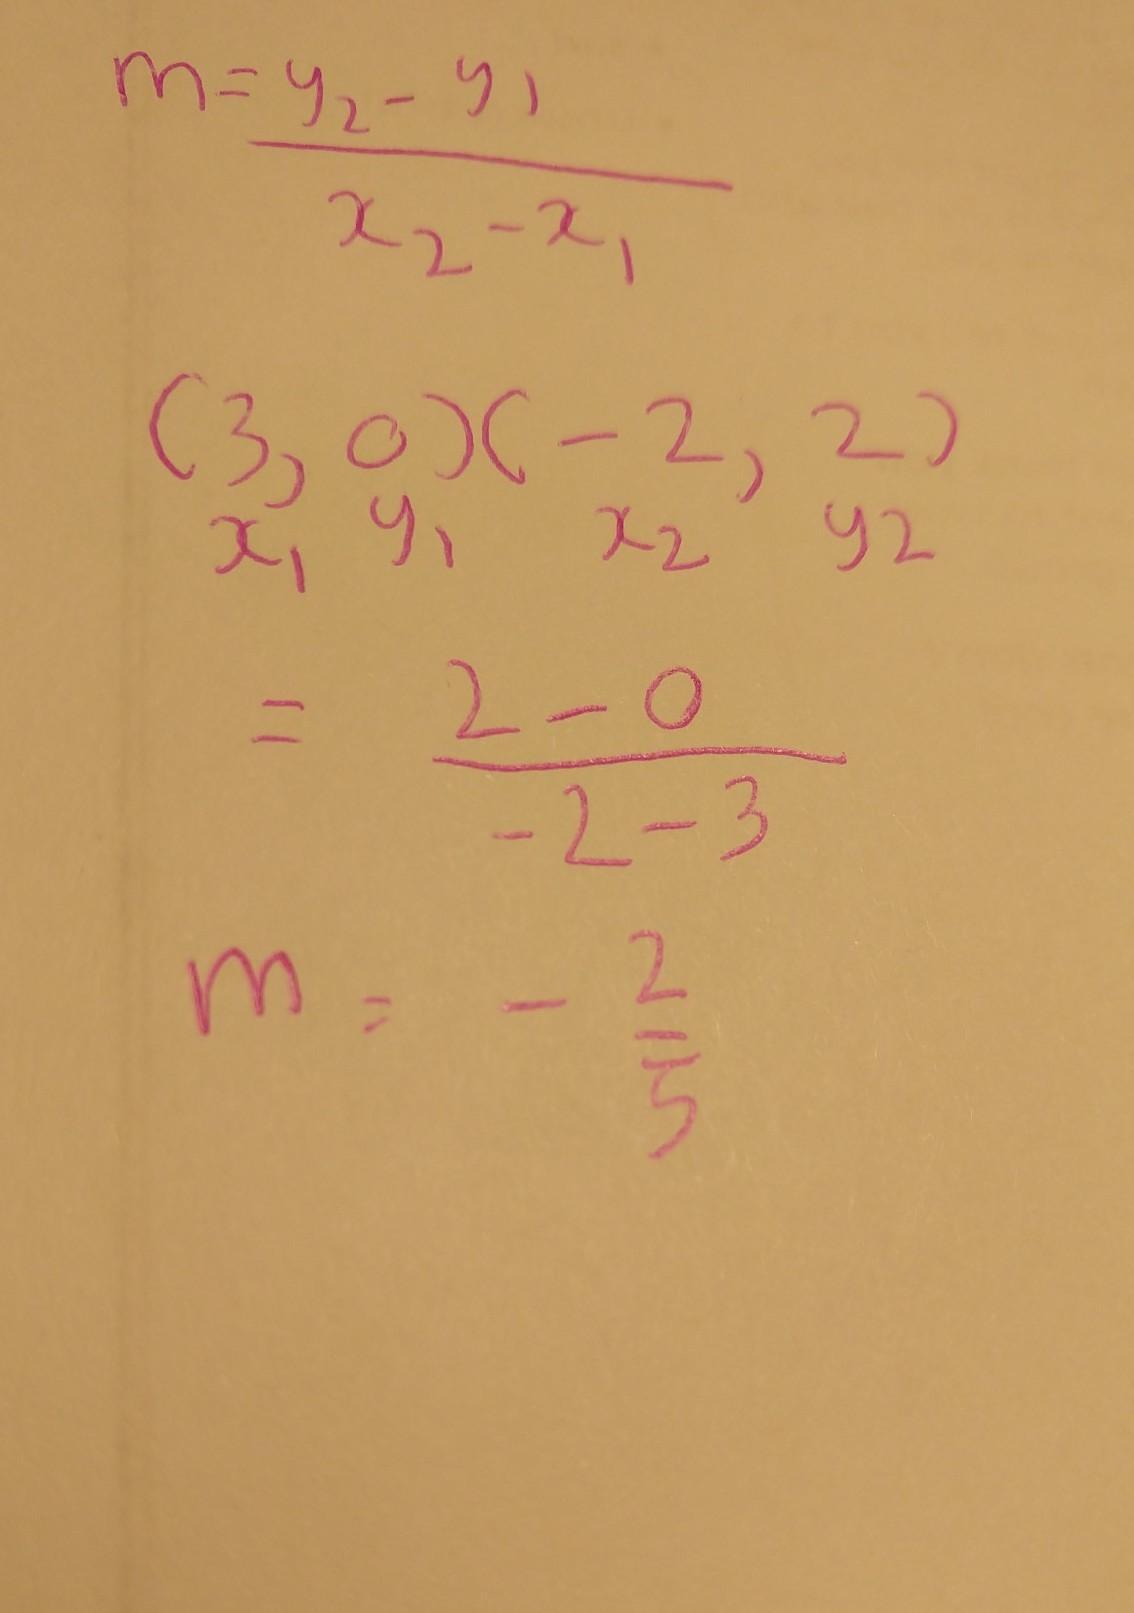 m = y₂ - y₁
x₂ - x₁
(3, 0)(-2, 2)
x₁ y₁ x₂ y₂
= 2 - 0
-2 - 3
m = - 2
5